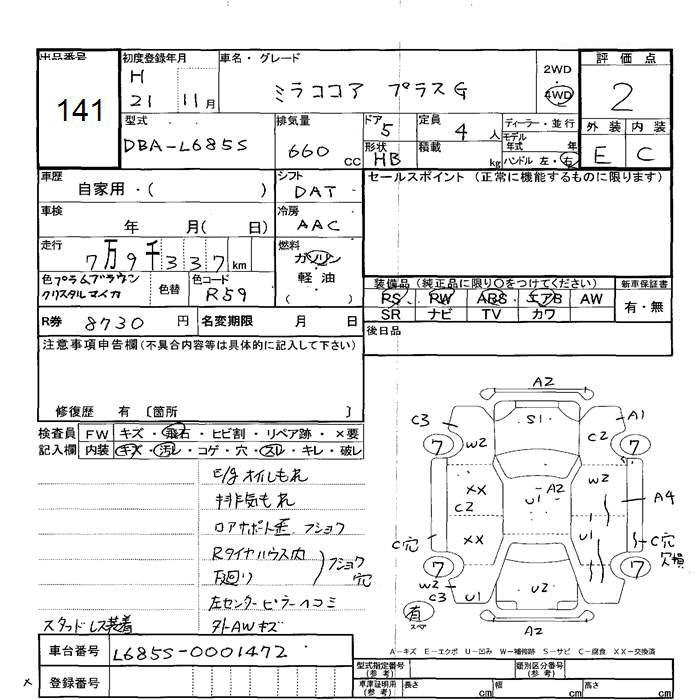 出品番号 初度登録年月 車名・グレード 2WD 評価点
141 H 21 11月 ミラココア プラスG 4WD 2
型式 排気量 ドア 定員 ディーラー・並行 外装 内装
DBA-L685S 660cc 5 4人 モデル年式 年 E C
形状 HB 積載 kg ハンドル 左・右
車歴 シフト セールスポイント (正常に機能するものに限ります)
自家用・( ) DAT
車検 冷房
年 月( 日) AAC
走行 燃料
7万9千337km ガソリン
軽油
( )
色 プラムブラウンクリスタルマイカ 色替 色コード R59
装備品 (純正品に限り○をつけてください) 新車保証書
PS PW ABS エアB AW 有・無
SR ナビ TV カワ
R券 8730円 名変期限 月 日 後日品
注意事項申告欄(不具合内容等は具体的に記入して下さい)
修復歴 有 〔箇所 〕
検査員 FW キズ・飛石・ヒビ割・リペア跡・×要
記入欄 内装 キズ・汚レ・コゲ・穴・スレ・キレ・破レ
E/gオイルもれ
排気もれ
ロアサポート歪 フショク
Rタイヤハウス内
下廻り フショク穴
左センターピラーヘコミ
スタッドレス装着 タトAWキズ
A2
C3 S1 A1
W2 C2
7 7
XX W2
C2 A2 U1 A4
C穴 XX U1 C穴 欠損
7 7
W2
C3 U1 U2
有 スペア A2
A-キズ E-エクボ U-凹み W-補修跡 S-サビ C-腐食 XX-交換済
車台番号 L685S-0001472
型式指定番号(参考) 類別区分番号(参考)
× 登録番号 車庫証明用(参考) 長さ cm 幅 cm 高さ cm